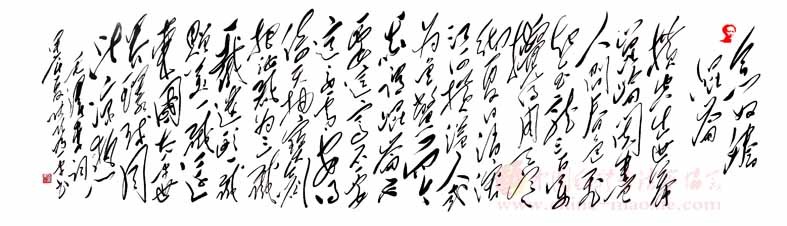 念奴娇
崑崙
横空出世莽
崑崙阅尽
人间春色飞
起玉龙三百万
搅得周天寒
彻夏日消溶
江河横溢人或
为鱼鳖而今
我谓崑崙不
要这高不要
这多雪安得
倚天抽宝剑
把汝裁为三截
一截遗欧一截
赠美一截还
东國太平世
界环球同
此凉热
毛泽东词